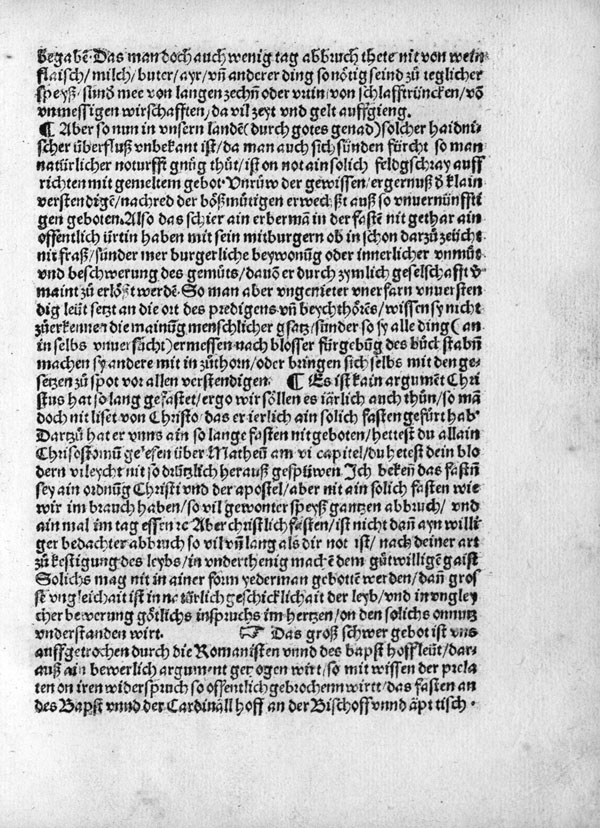 begabẽ. Das man doch auch wenig tag abbruch thete nit von wein
flaisch/milch/buter/ayr/vñ anderer ding so nötig seind zů yeglicher
speyß. sund̃ mee von langen zechñ oder vrtin/von schlafftrüncken/võ
vnmessigen wirschafften/da vil zeyt vnd gelt auffgieng.
¶ Aber so nun in vnsern landẽ (durch gotes genad) solcher haidni-
scher überfluß vnbekant ist/da man auch sich sünden fürcht so man
natürlicher noturfft gnůg thůt/ist on not ain solich feldgschray auff
richten mit gemeltem gebot. Vnrůw der gewissen/ergernuß d̃ klain
verstendigẽ/nachred der bößmütigen erweckst auß so vnuernünffti
gen geboten. Also das schier ain erbermã in der fastẽ nit gethar ain
offentlich ürtin haben mit sein mitburgern ob in schon darzů zeücht
nit fraß/sunder mer burgerliche beywonũg oder innerlicher vnmůt
vnd beschwerung des gemüts/dauõ er durch zymlich geselschafft v̈
maint zů erlößt werdẽ. So man aber vngenieter vnerfarn vnuersten
dig leüt setzt an die ort des predigens vñ beychthörẽs/wissen sy nicht
zůerkennen die mainũg menschlicher gsatz/sunder so sy alle ding (an
in selbs vnuersůcht) ermessen nach blosser fürgebũg des bůchstabñ
machen sy andere mit in zůthorn/oder bringen sich selbs mit den ge-
setzen zů spot vor allen verstendigen. ¶ Es ist kain argumẽt Chri
stus hat so lang gefastet/ergo wir söllen es iärlich auch thůn/so mã
doch nit liset von Christo das er ierlich ain solich fasten gefürt hab.
Dartzů hat er vnns ain so lange fasten nit geboten/hettest du allain
Chrisostomũ gelesen über Matheũ am vi capitel/du hetest dein blo
dern vileycht nit so drützlich herauß gespüwen. Ich bekẽn das fastñ
sey ain ordnũg Christi vnd der apostel/aber nit ain solich fasten wie
wir im brauch haben/so vil gewonter speyß gantzen abbruch/ vnd
ain mal im tag essen ꝛc Aber christlich fasten/ist nicht dañ ayn willi
ger bedachter abbruch so vil vñ lang als dir not ist/ nach deiner art
zů kestigung des leybs/in vnderthenig machẽ dem gůtwilligẽ gaist
Solichs mag nit in ainer form yederman gebottẽ werden/dañ gros
se vngleichait ist in natürlich geschicklichait der leyb/vnd in vngley
cher bewerung götlichs inspruchs im hertzen/on den solichs onnutz
vnderstanden wirt. ☞ Das groß schwer gebot ist vns
auffgetrochen durch die Romanisten vnnd des bapst hoffleüt/dar-
auß ain bewerlich argument getzogen wirt/so mit wissen der prela
ten on iren widerspruch so offentlich gebrochenn wirtt/das fasten an
des Bapst vnnd der Cardinäll hoff an der Bischoff vnnd äpt tisch.